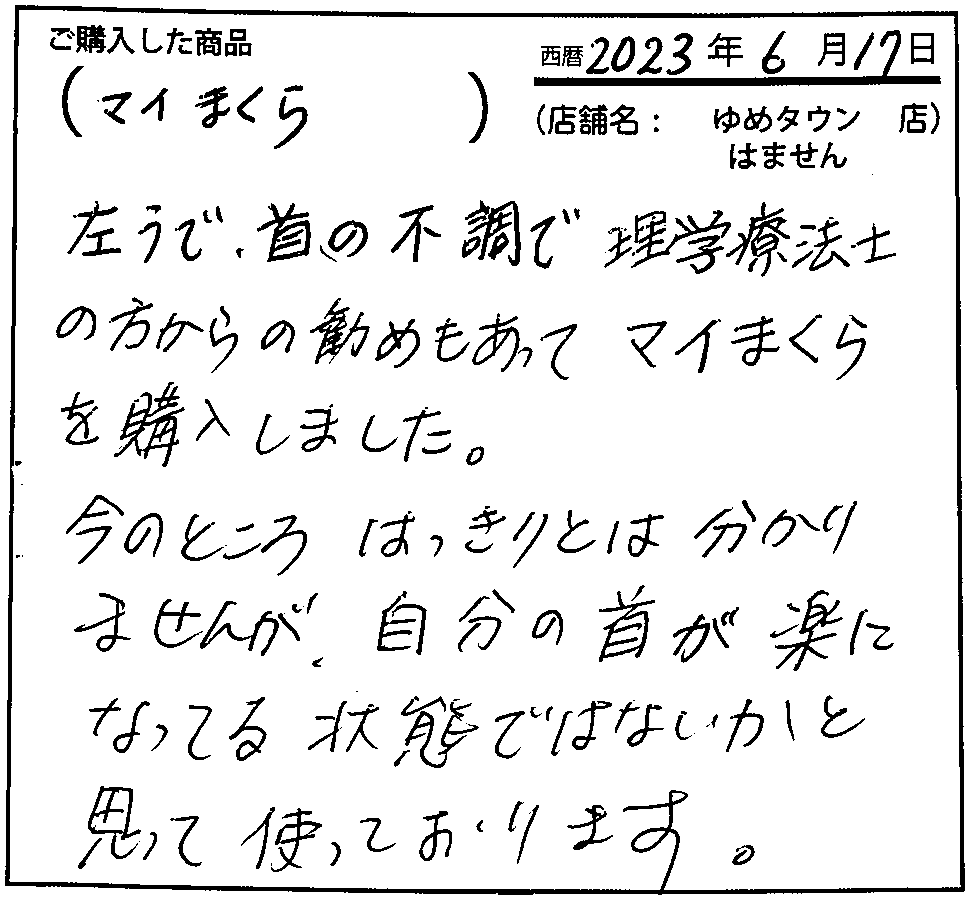 ご購入した商品
西暦2023年6月17日
(マイまくら)
(店舗名： ゆめタウン 店)
はません
左うで、首の不調で理学療法士
の方からの勧めもあってマイまくら
を購入しました。
今のところはっきりとは分かり
ませんが、自分の首が楽に
なってる状態ではないかと
思って使っております。